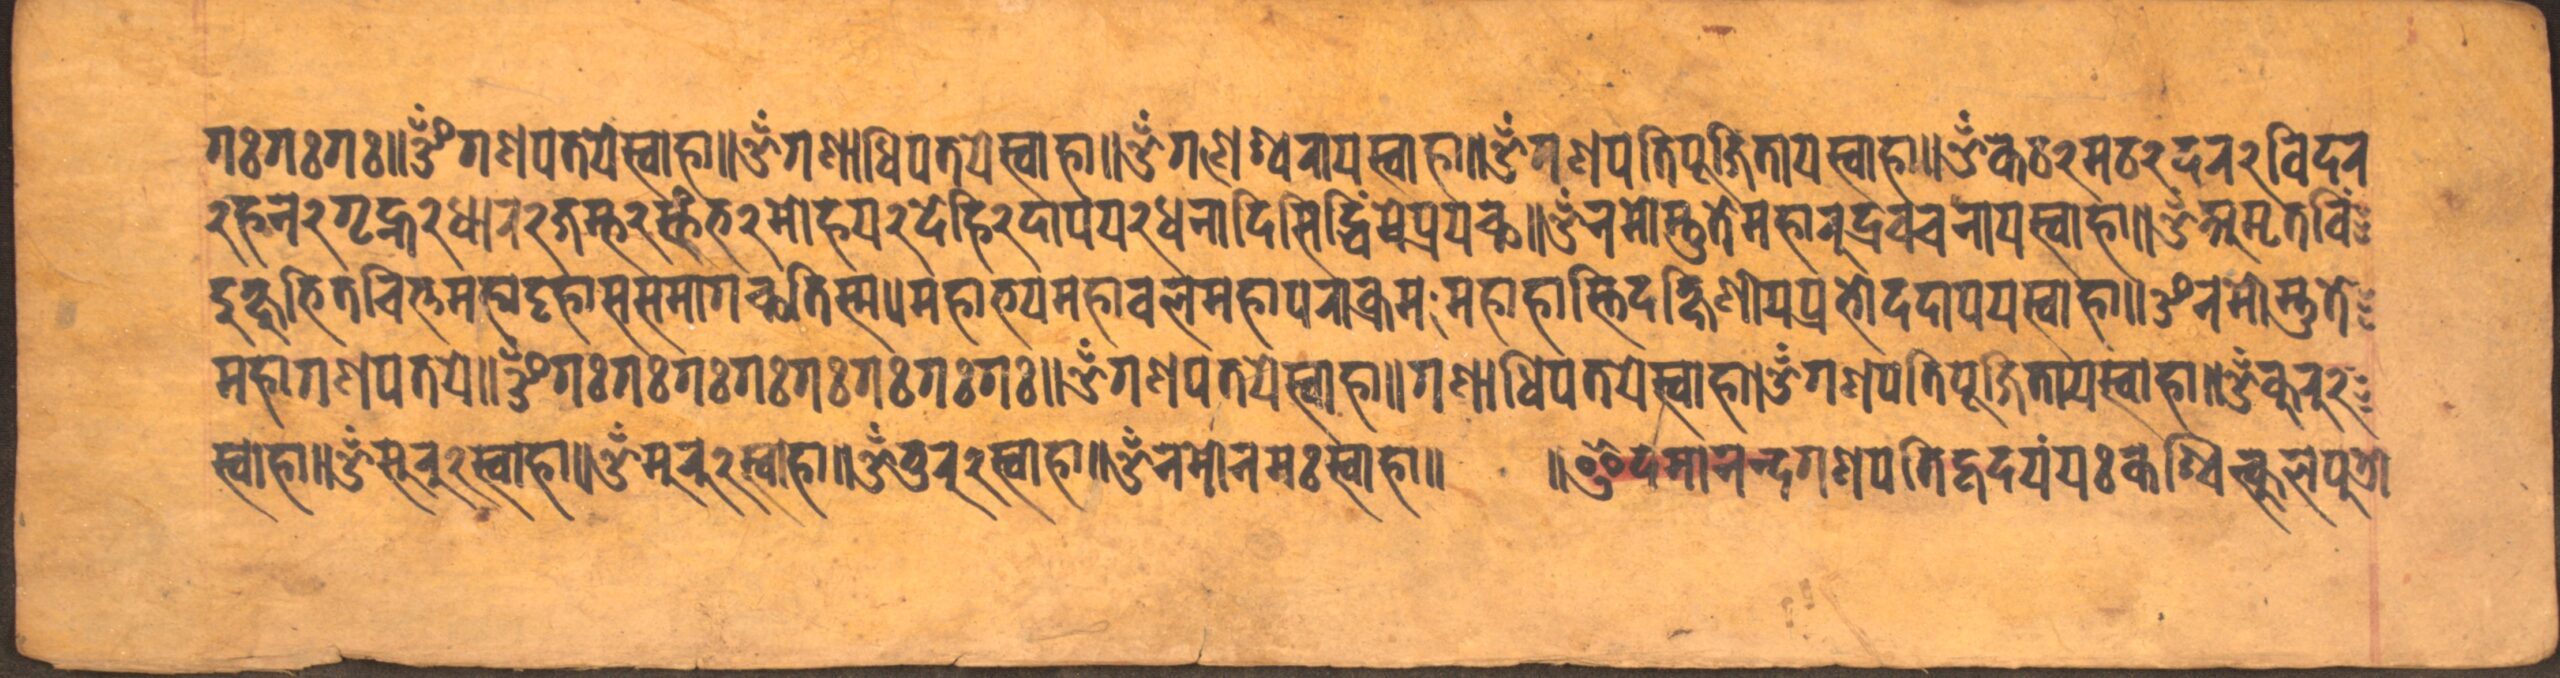 गःगःगः॥ॐगणपतयेस्वाहा॥ॐगणाधिपतयेस्वाहा॥ॐगणेश्वरायस्वाहा॥ॐगणपतिपूजितायस्वाहा॥ॐकठ२मठ२दर२विदर
२हन२गृह्न२धार२जम्भ२स्तंभ२मोहय२देहि२दापय२धनादिसिद्धिंमेप्रयच्छ॥ॐनमोस्तुतेमहारुद्रवचनायस्वाहा॥ॐअमृतविं
दुक्षुभितचित्तमहादृहाससमागच्छतिस्म॥महाभयमहावलमहापराक्रममहाहास्तिदक्षिणीयप्रभोददापयस्वाहा॥ॐनमोस्तुते
महागणपतये॥ॐगःगःगःगःगःगःगःगः॥ॐगणपतयेस्वाहा॥गणाधिपतयेस्वाहा।ॐगणपतिपूजितायस्वाहा॥ॐकुरु२
स्वाहा॥ॐसुरु२स्वाहा॥ॐमुरु२स्वाहा॥ॐतुरु२स्वाहा॥ॐनमोनमःस्वाहा॥ ॥ॐ मानन्दगणपतिहृदयंयःकश्चित्कुलपुत्रो